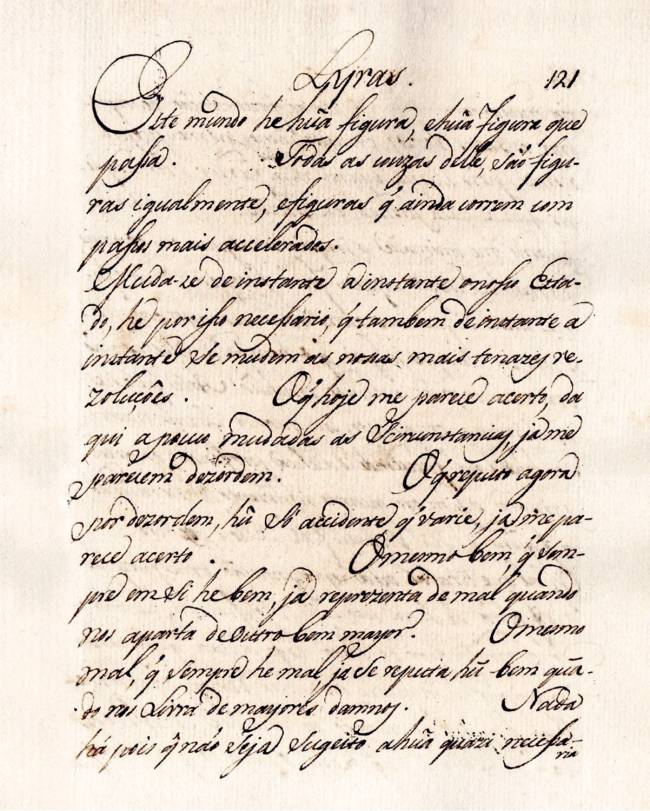 Lyras. 121
Este mundo he hũa figura, e hũa figura que
passa. Todas as couzas delle, são figu-
ras igualmente, e figuras q̃ ainda correm com
passos mais accelerados.
Muda-se de instante a instante o nosso Esta-
do, he por isso necessario, q̃ tambem de instante a
instante se mudem as nossas mais tenazes re-
zoluções. O q̃ hoje me parece acerto, da
qui a pouco mudadas as circunstancias, ja me
parecem dezordem. O q̃ reputo agora
por dezordem, hũ só accidente q̃ varie, ja me pa-
rece acerto. O mesmo bem, q̃ sem-
pre em si he bem, ja reprezenta de mal quando
nos aparta de outro bem mayor. O mesmo
mal, q̃ sempre he mal, ja se reputa hũ bem quã-
do nos livra de mayores damnos. Nada
há pois q̃ não seja sugeito a hũa quazi necessa-
ria